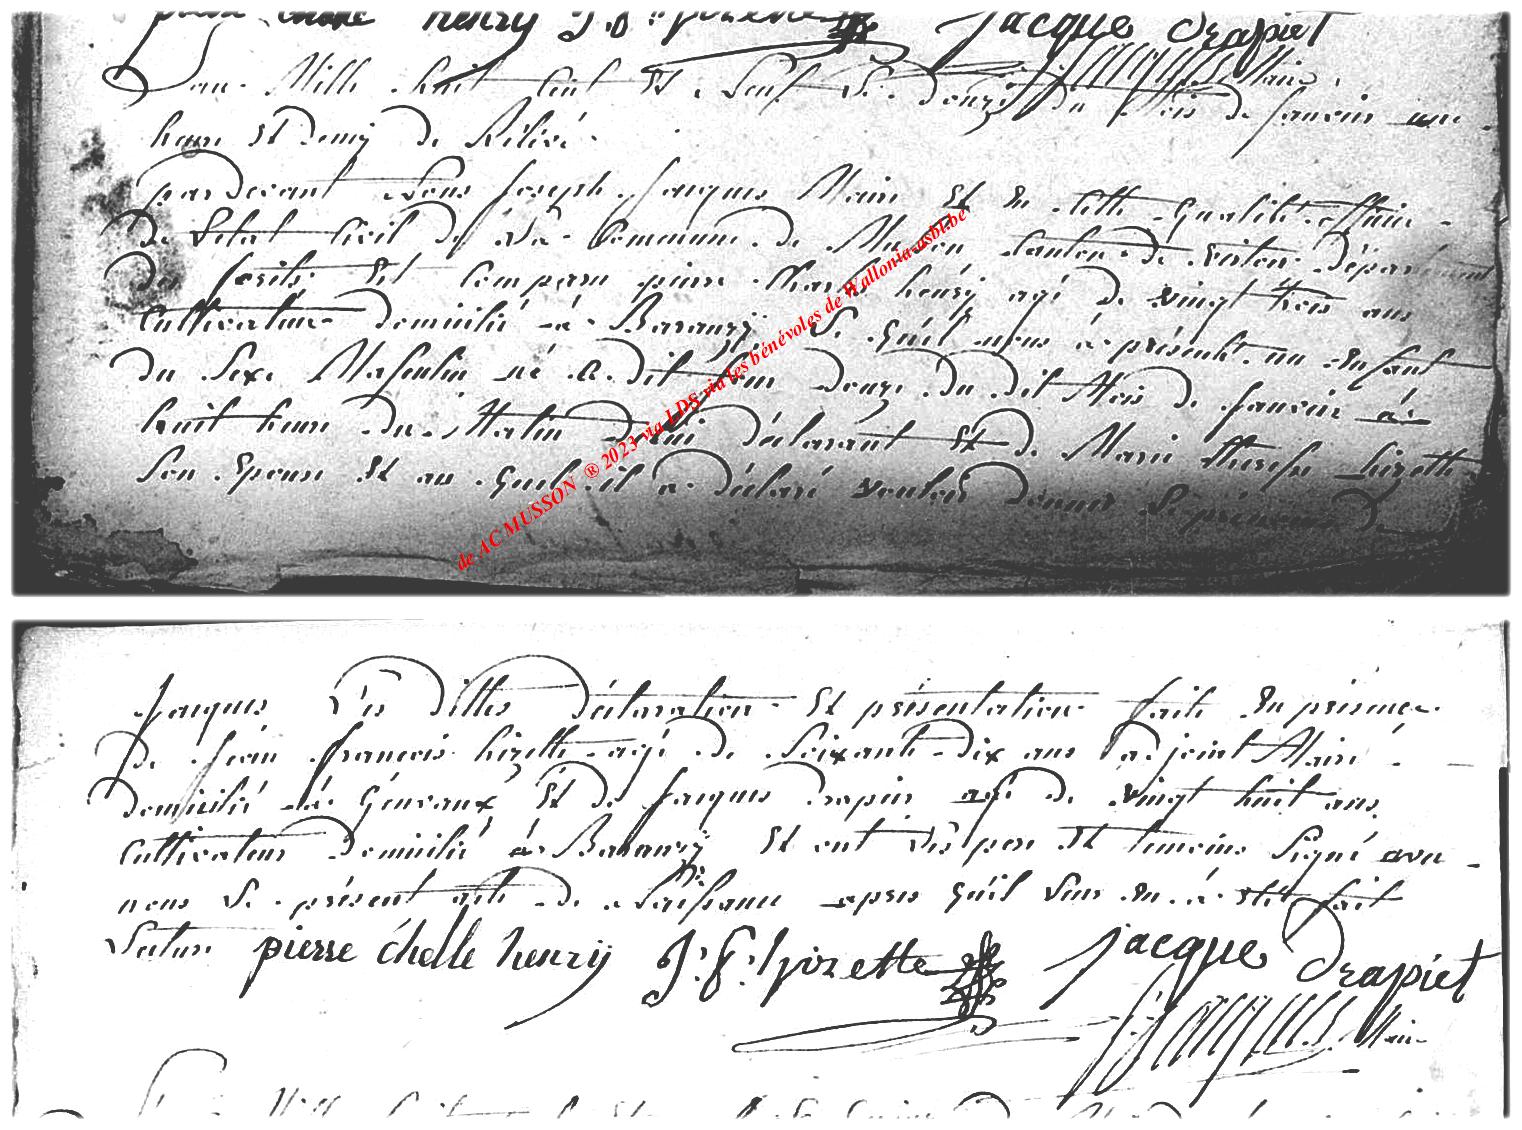 pierre chelle henry J. F. hizette jacque drapiet
Lan Mille huit Cent Et Neuf Le douze du Mois de janvier une
heure Et Demy de Relevé
pardevant Nous joseph jacques Maire Et En cette qualité officier
de Letat Civil de La Commune de Musson Canton de Virton Departement
Des forêts Est Comparu pierre Charles henry agé de vingt trois ans
Cultivateur Domicilié à Baranzÿ Le quel nous a présenté un Enfant
du Sexe Masculin né Le dit jour Douze Du Dit Mois de janvier à
huit heure du Matin de lui déclarant Et de Marie therese hizette
Son Epouse Et au quel il a déclaré vouloir donner Le prenom De
de AC MUSSON ® 2023 via LDS via les bénévoles de Wallonia-asbl.be
jacques Les Dittes Déclaration Et présentation faite En présence
de jean francois hizette agé de Soixante Dix ans adjoint Maire
Domicilié à Gévraux Et de jacques drapier agé de vingt huit ans
Cultivateur Domicilié à Baranzÿ Et ont Les pere Et temoins Signé avec
nous Le présent acte de Naissance apres quil Leur En a Eté fait
Lecture pierre chelle henrÿ J. F. hizette jacque drapiet
Maire